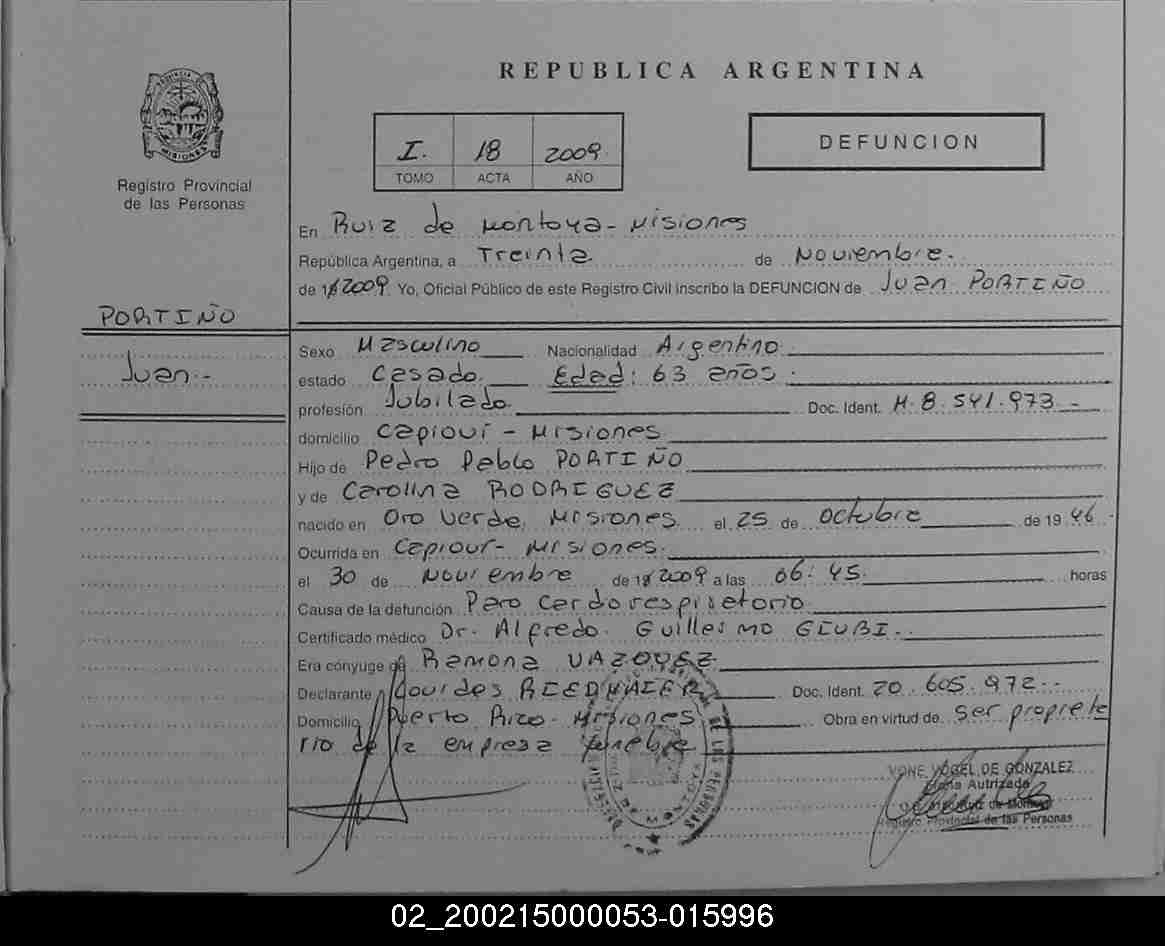 REPUBLICA ARGENTINA
PROVINCIA DE
MISIONES
Registro Provincial
de las Personas
I. 18 2009
TOMO ACTA AÑO
DEFUNCION
En Ruiz de Montoya - Misiones
República Argentina, a Treinta de Noviembre.
de 19 2009. Yo, Oficial Público de este Registro Civil inscribo la DEFUNCION de Juan PORTIÑO
PORTIÑO
Juan.-
Sexo Masculino Nacionalidad Argentino
estado Casado. Edad: 63 años.
profesión Jubilado. Doc. Ident. M. 8.541.973.-
domicilio Capioví - Misiones
Hijo de Pedro Pablo PORTIÑO
y de Carolina RODRIGUEZ
nacido en Oro Verde, Misiones el 25 de Octubre de 19 46.-
Ocurrida en Capioví - Misiones.
el 30 de Noviembre de 19 2009 a las 06:45 horas
Causa de la defunción Paro Cardorespiratorio
Certificado médico Dr. Alfredo Guillermo GIUBI.-
Era cónyuge de Ramona VAZQUEZ
Declarante Lourdes RIEDMAIER Doc. Ident. 20.605.972.-
Domicilio Puerto Rico - Misiones Obra en virtud de ser propieta
rio de la empresa fúnebre
DE LAS PERSONAS
VONE VOGEL DE GONZALEZ
Autrizada
Ruiz de Montoya
Registro Provincial de las Personas
02_200215000053-015996